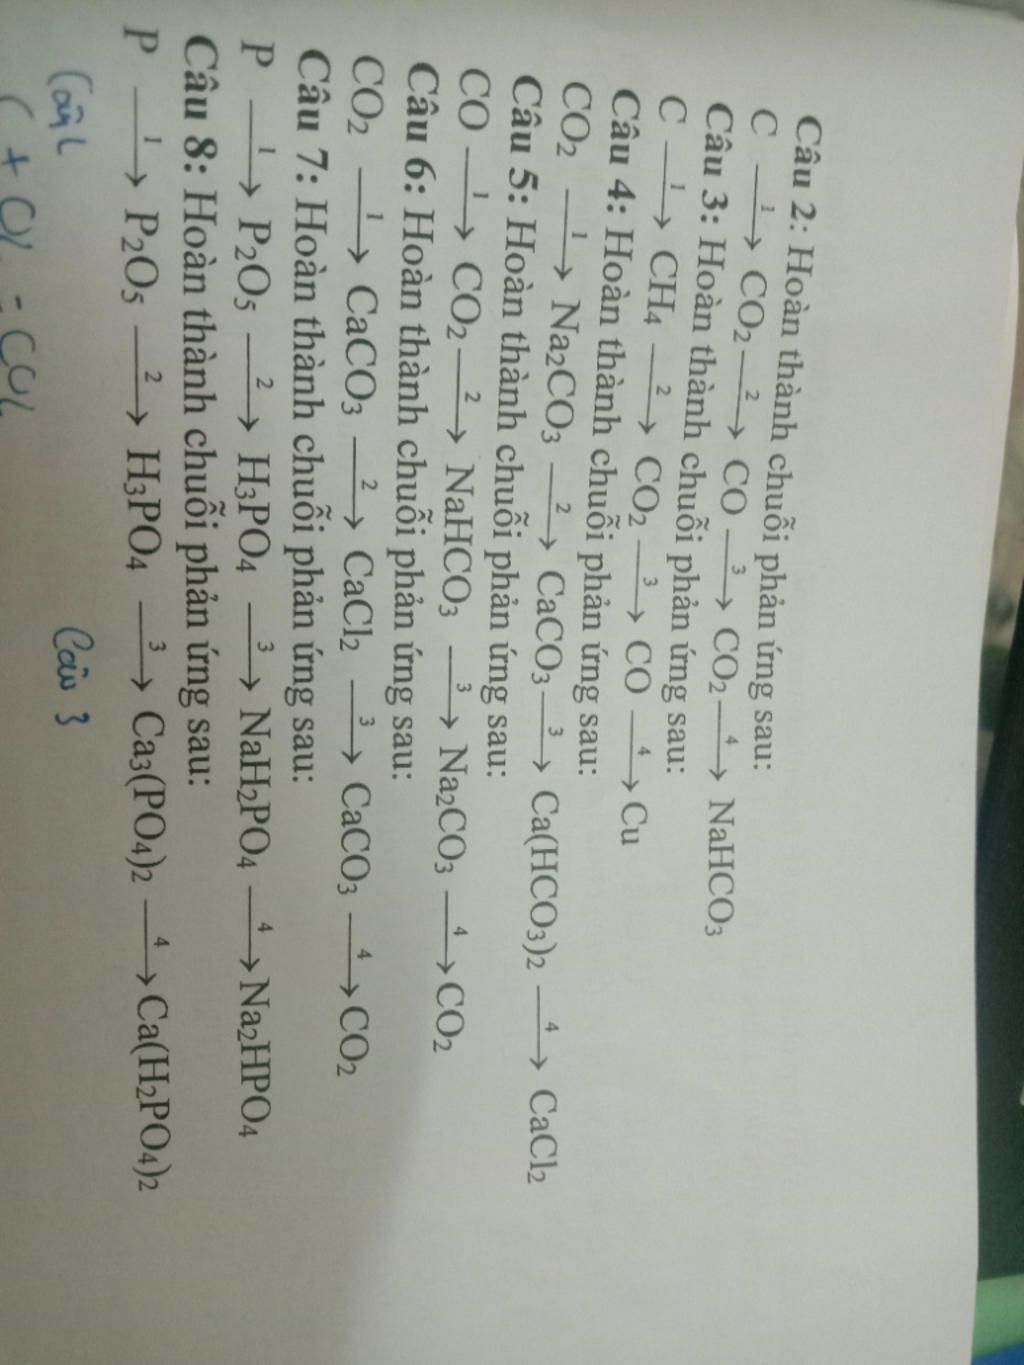 Câu 2: Hoàn thành chuỗi phản ứng sau:
C —1→ CO₂ —2→ CO —3→ CO₂ —4→ NaHCO₃
Câu 3: Hoàn thành chuỗi phản ứng sau:
C —1→ CH₄ —2→ CO₂ —3→ CO —4→ Cu
Câu 4: Hoàn thành chuỗi phản ứng sau:
CO₂ —1→ Na₂CO₃ —2→ CaCO₃ —3→ Ca(HCO₃)₂ —4→ CaCl₂
Câu 5: Hoàn thành chuỗi phản ứng sau:
CO —1→ CO₂ —2→ NaHCO₃ —3→ Na₂CO₃ —4→ CO₂
Câu 6: Hoàn thành chuỗi phản ứng sau:
CO₂ —1→ CaCO₃ —2→ CaCl₂ —3→ CaCO₃ —4→ CO₂
Câu 7: Hoàn thành chuỗi phản ứng sau:
P —1→ P₂O₅ —2→ H₃PO₄ —3→ NaH₂PO₄ —4→ Na₂HPO₄
Câu 8: Hoàn thành chuỗi phản ứng sau:
P —1→ P₂O₅ —2→ H₃PO₄ —3→ Ca₃(PO₄)₂ —4→ Ca(H₂PO₄)₂
Câu 3